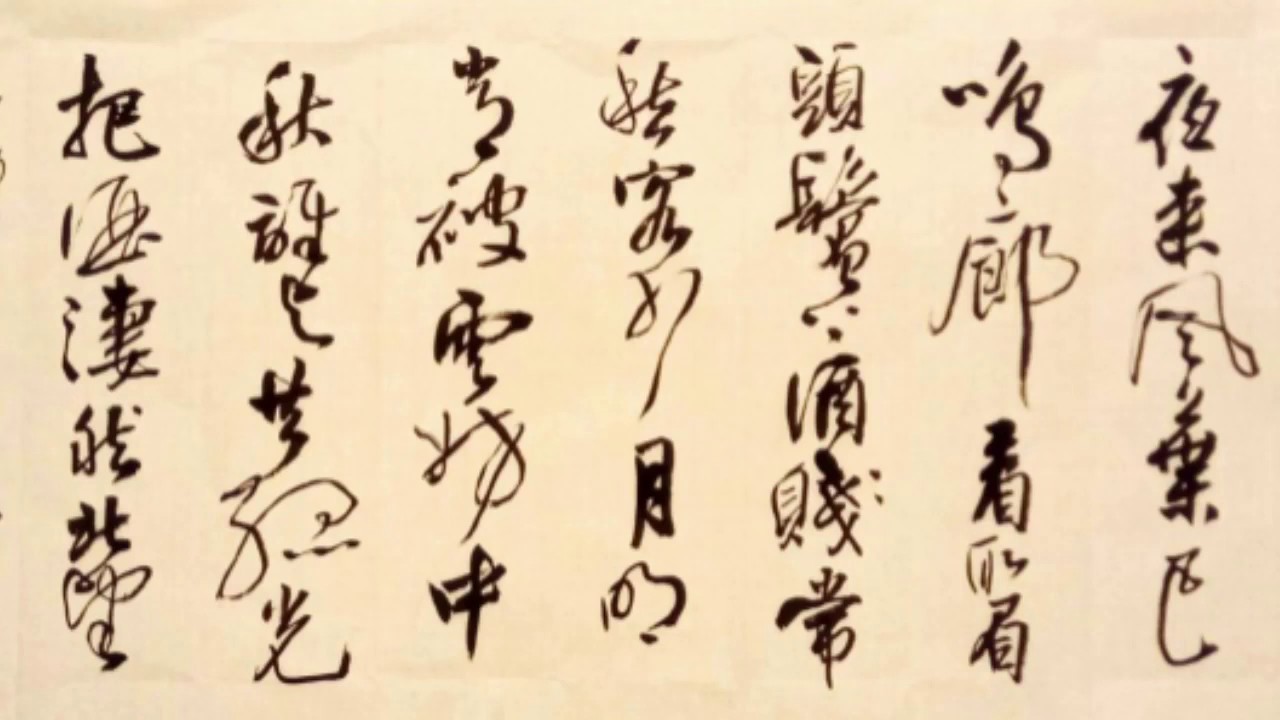 夜来風葉已
鳴廊看取眉
頭鬢上酒賤常
愁客少月明
被雲妨中
秋誰与共孤光
把淒然北望